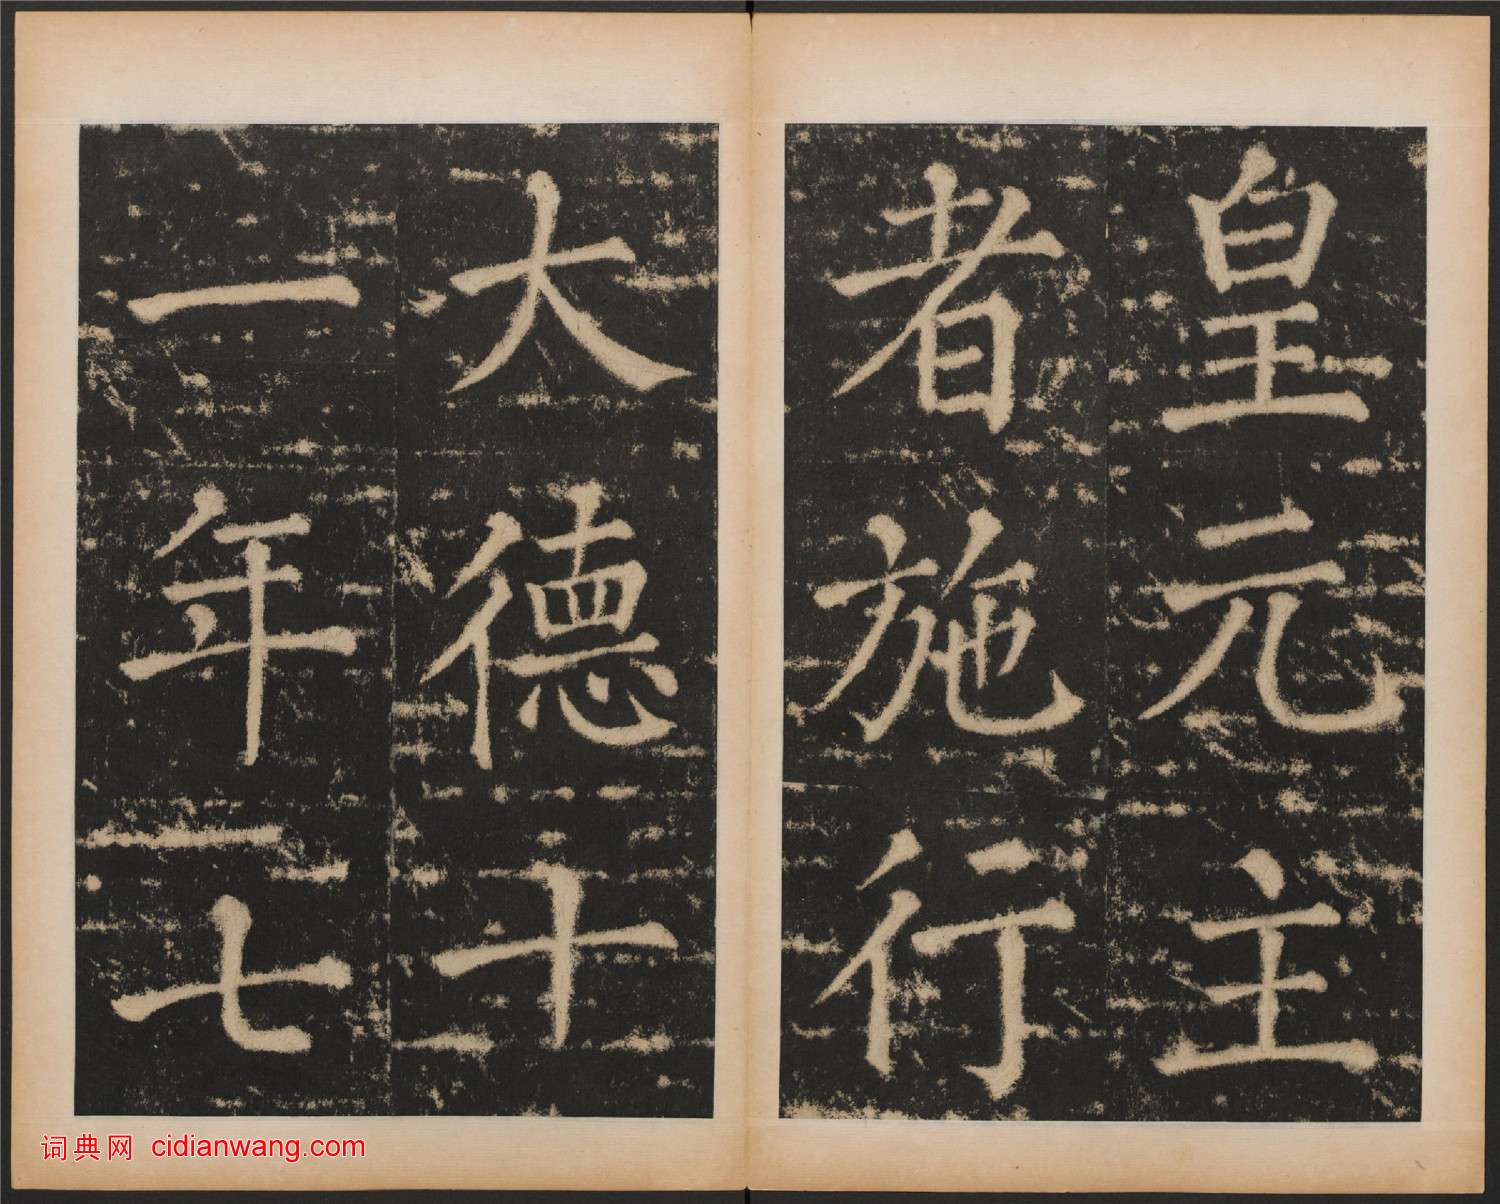 皇元主
者施行
大德十
一年七
词典网 cidianwang.com